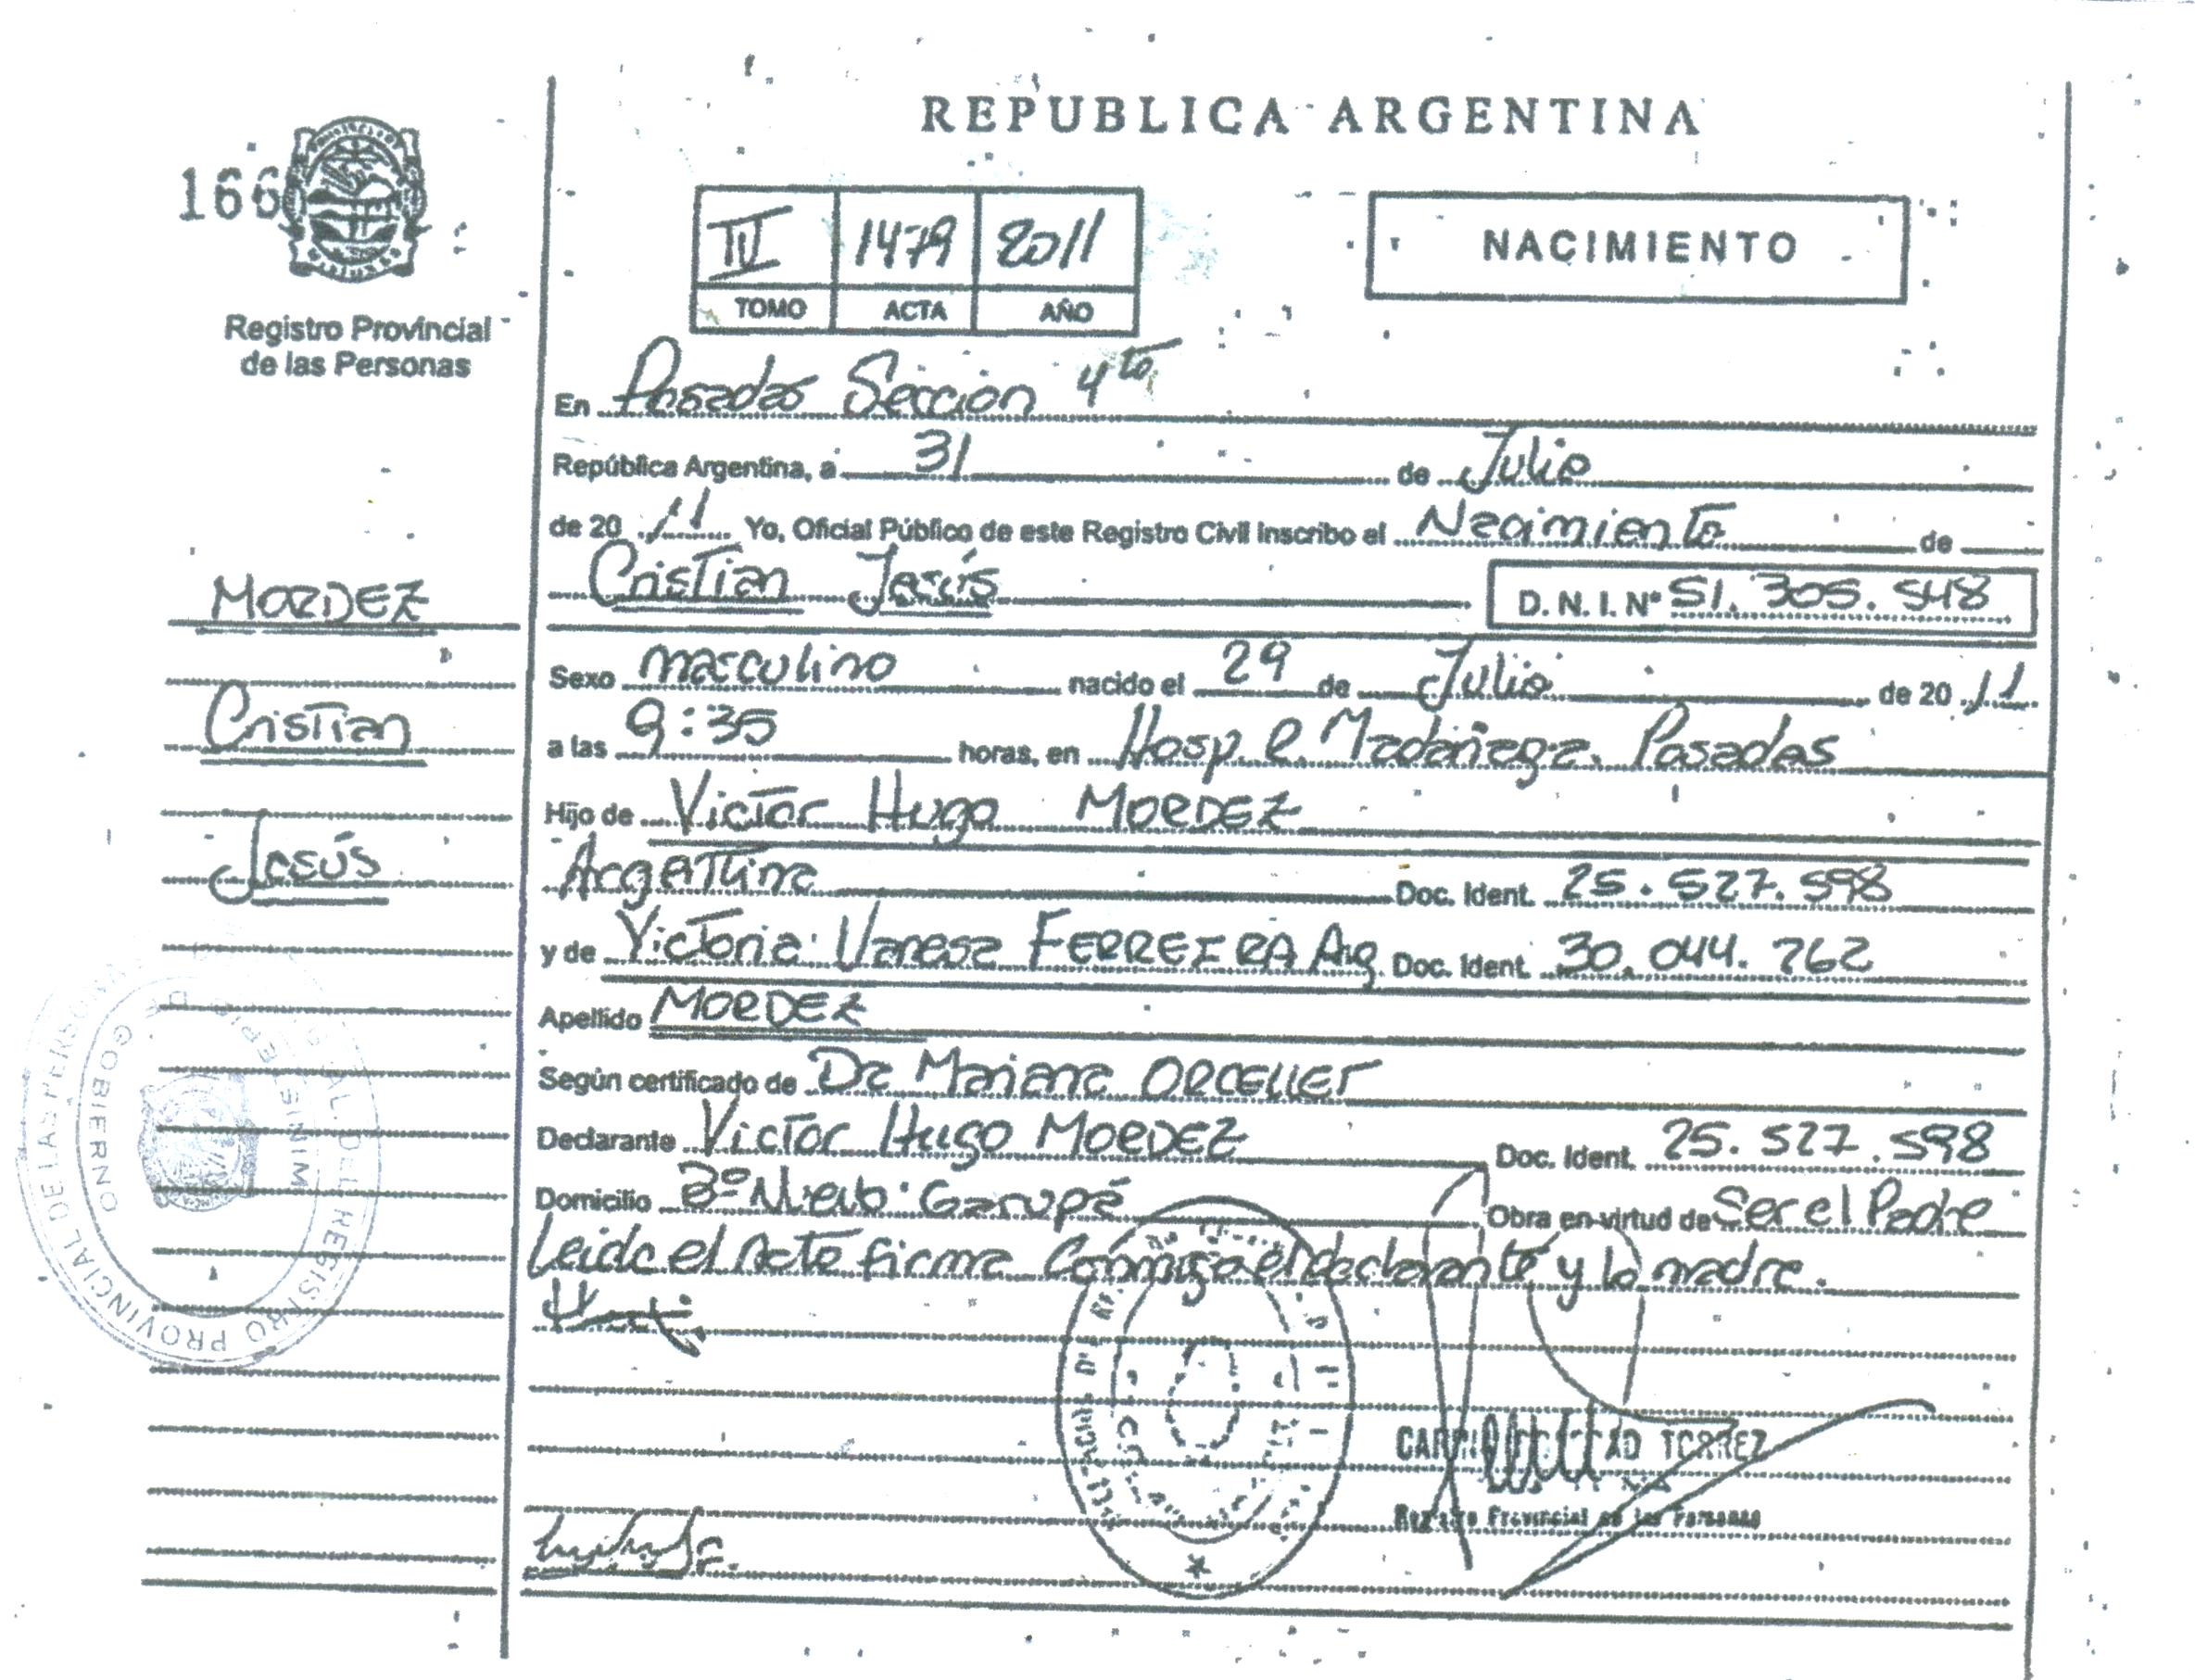 REPUBLICA ARGENTINA
166
MISIONES
Registro Provincial
de las Personas
IV 1479 2011
TOMO ACTA AÑO
NACIMIENTO
En Posadas Sección 4ta
República Argentina, a 31 de Julio
de 20 11 Yo, Oficial Público de este Registro Civil Inscribo el Nacimiento de
Cristian Jesús D. N. I. Nº 51.305.548
MORDEZ
Cristian
Jesús
Sexo masculino nacido el 29 de Julio de 20 11
a las 9:35 horas, en Hosp. R. Madariaga. Posadas
Hijo de Victor Hugo MORDEZ
Argentina Doc. Ident. 25.527.598
y de Victoria Vanesa FERREIRA Arg. Doc. Ident. 30.044.762
Apellido MORDEZ
Según certificado de Dra Mariana ORCELLET
Declarante Victor Hugo MORDEZ Doc. Ident. 25.527.598
Domicilio Bº Nuevo Garupá Obra en virtud de Ser el Padre
Leida el Acta firma Conmigo el declarante y la madre.
REGISTRO PROVINCIAL DE LAS PERSONAS
GOBIERNO
TORREZ
Registro Provincial de las Personas